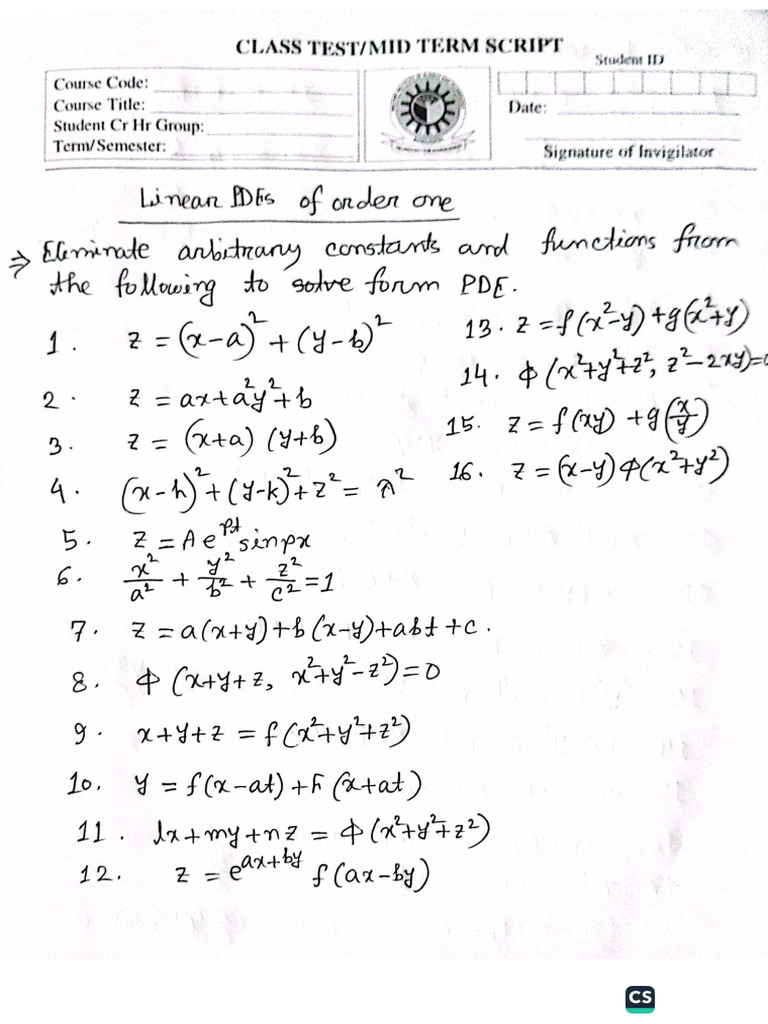 CLASS TEST/MID TERM SCRIPT
Student ID
Course Code:
Course Title:
Student Cr Hr Group:
Term/Semester:
Date:
Signature of Invigilator
Linear PDEs of order one
⇒ Eliminate arbitrary constants and functions from
the following to solve form PDE.
1. z = (x-a)² + (y-b)²
2. z = ax+a²y²+b
3. z = (x+a) (y+b)
4. (x-h)²+(y-k)²+z² = λ²
5. z = A e^{pt} sin px
6. x²/a² + y²/b² + z²/c² = 1
7. z = a(x+y)+b(x-y)+abt+c.
8. Φ (x+y+z, x²+y²-z²)=0
9. x+y+z = f(x²+y²+z²)
10. y = f(x-at)+F(x+at)
11. lx+my+nz = Φ(x²+y²+z²)
12. z = e^{ax+by} f(ax-by)
13. z = f(x²-y)+g(x²+y)
14. Φ(x²+y²+z², z²-2xy)=0
15. z = f(xy) +g(x/y)
16. z = (x-y)Φ(x²+y²)
CS